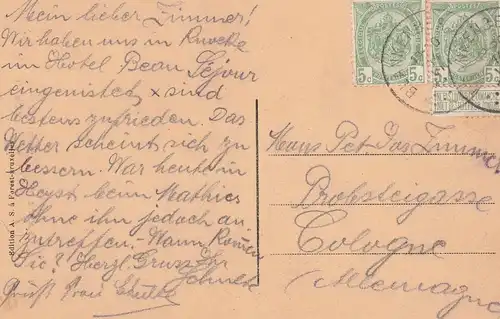 Mein lieber Zimmer!
Wir haben uns in
im Hotel Beau Séjour
eingenistet & sind
bestens zufrieden. Das
Wetter scheint sich zu
bessern. War heute in
Heyst beim Mathies
ohne ihn jedoch an-
zutreffen. Wann kommen
Sie? Herzl. Gruss Ihr
Prosit
Edition A. S. à Forest-Bruxelles
5c 5c
5c 5c
Hans Pet. Jos. Zimmer
Probsteigasse
Cologne
Allemagne